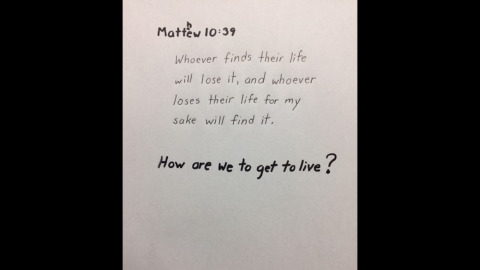 Matthew 10:39
Whoever finds their life
will lose it, and whoever
loses their life for my
sake will find it.
How are we to get to live?